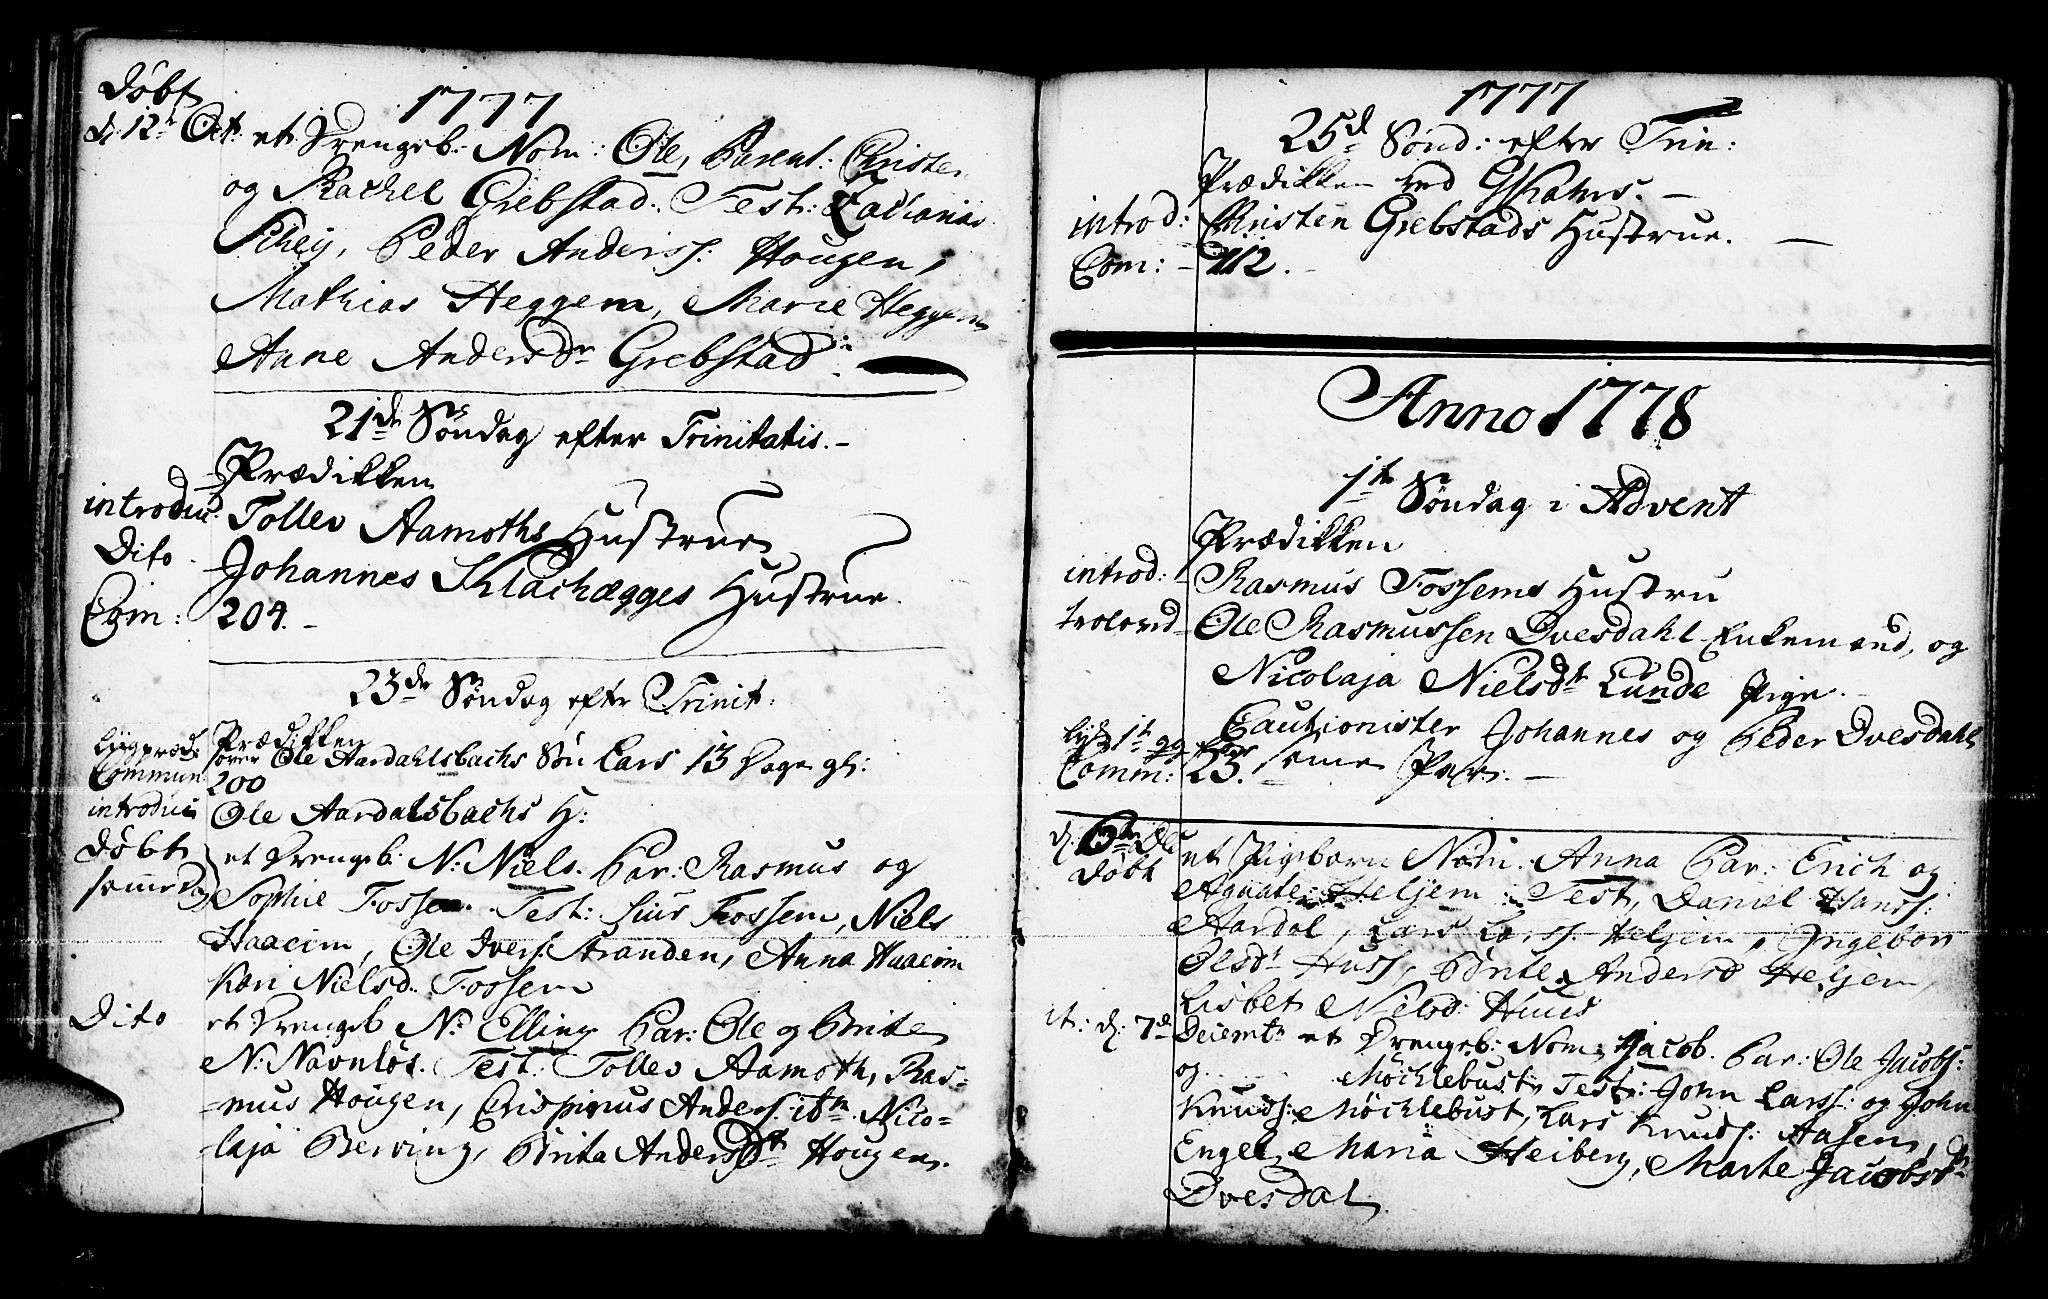 1777
Døbt
d. 12t Oct. et Drengeb: Nom: Ole, Parent: Christen
og Rachel Grebstad. Test: Zacharias
Schey, Peder Anderss: Hougen,
Mathias Heggem, Marie Heggem
Anne Andersdr Grebstad.
21de Søndag efter Trinitatis. -
Prædikken
introduc. Tollev Aamoths Hustrue
Dito Johannes Klachægges Hustrue.
Com: 204. -
23de Søndag efter Trinit:
Prædikken
Ligpræd: over Ole Aardahlsbachs Søn Lars 13 Dage gl:
Commun: 200
introduc: Ole Aardalsbachs H:
Døbt et Drengeb: N: Niels. Par: Rasmus og
samme Dag Sophie Fossem. Test: Siur Fossem, Niels
Haaeim, Ole Ivers: Stranden, Anna Haaeim
Kari Nielsd: Fossem
Dito et Drengeb N: Elling Par: Ole og Brite
N: Navnløs. Test: Tollev Aamoth, Ras-
-mus Hougen, Crispinus Anders: Nico-
laja Berving, Brita Andersdt Hougen.
1777
25d Sønd: efter Trin:
Prædikken ved
introd: Christen Grebstads Hustrue. -
Com: - 112. -
Anno 1778
1te Søndag i Advent
Prædikken
introd: Rasmus Fossems Hustru
trolovd Ole Rasmussen Øvesdahl Enkemand, og
Nicolaja Nielsdt Lunde Pige.
Cautionister Johannes og Peder Øvesdahl
lyst 1t gg for samme Par. -
Comm: 23.
d: 6te Dec et Pigebarn Nom. Anna Par: Erich og
Døbt Agaate Heljem: Test, Daniel Hanss:
Aardal, Lars Larss. Heljem, Ingebor
Olsdt Huss, Brite Andersd Heljem,
Lisbet Nielsd: Huus
it: d: 7d Decembr et Drengeb: Nom: Jacob. Par: Ole Jacobs:
og Möchlebust, Test: John Larss: og John
Knuds: Möchlebust, Lars Knuds: Aasen,
Engel Maria Heiberg, Marte Jacobsdtr
Øvesdal